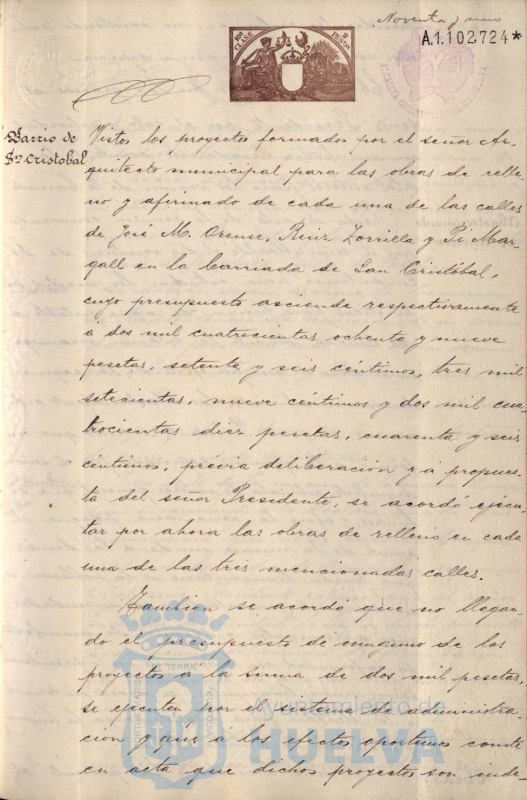 Noventa y uno
10ª CLASE 2 PESETAS
A.1.102.724*
Barrio de
Sn Cristobal
Vistos los proyectos formados por el señor Ar-
quitecto municipal para las obras de relle-
no y afirmado de cada una de las calles
de José M. Orense, Ruiz Zorrilla y Pi Mar-
gall en la barriada de San Cristóbal,
cuyo presupuesto asciende respectivamente
á dos mil cuatrocientas ochenta y nueve
pesetas, setenta y seis céntimos, tres mil
setecientas, nueve céntimos y dos mil cua-
trocientas diez pesetas, cuarenta y seis
céntimos, prévia deliberación y á propues-
ta del señor Presidente, se acordó ejecu-
tar por ahora las obras de relleno en cada
una de las tres mencionadas calles.
Tambien se acordó que no llegan-
do el presupuesto de ninguno de los
proyectos á la suma de dos mil pesetas,
se ejecuten por el sistema de administra-
ción y que á los efectos oportunos conste
en acta que dichos proyectos son inde-
Ayuntamiento de
HUELVA